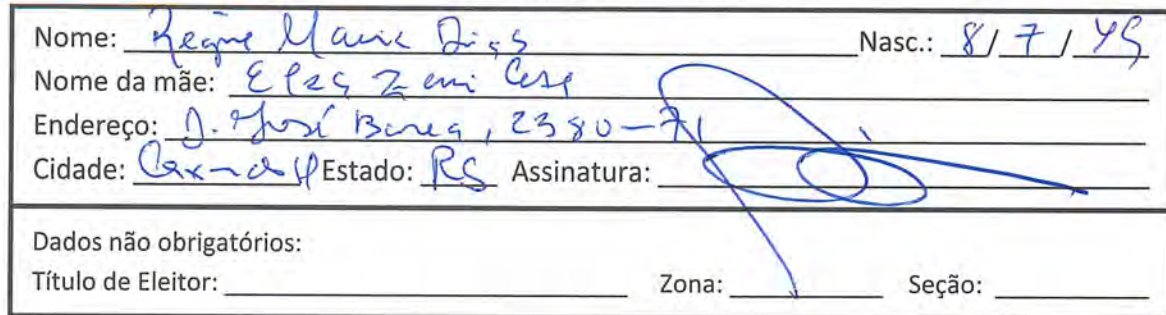 Nome: Maria Dias Nasc.: 8/7/45
Nome da mãe: Elza Zeni
Endereço: D. José Barea, 2380-71
Cidade: Estado: RS Assinatura:
Dados não obrigatórios:
Título de Eleitor: Zona: Seção: